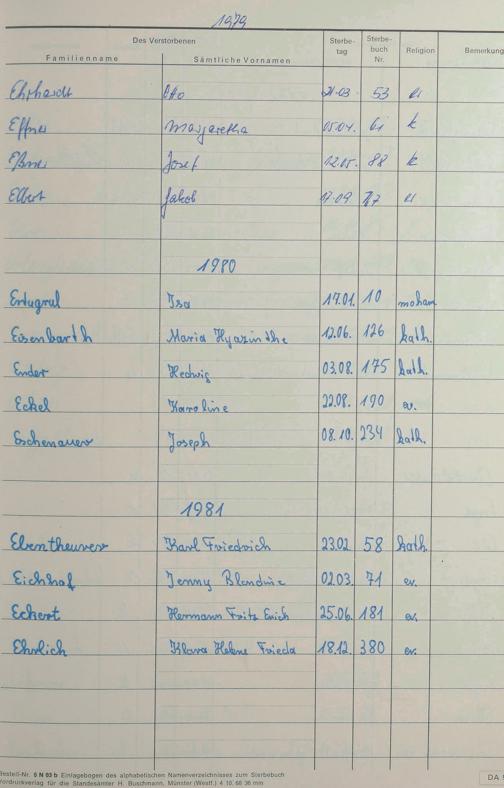 1979
Des Verstorbenen Sterbe- Sterbe- Religion Bemerkung
Familienname Sämtliche Vornamen tag buch Nr.
Ehrhardt Otto 21.03. 53 ev
Effner Margaretha 05.04. 61 k
Eßner Josef 12.05. 88 k
Elbert Jakob 17.09 ev
1980
Ertugrul Isa 17.01. 10 moham
Eisenbarth Maria Hyazinthe 12.06. 126 kath.
Ender Hedwig 03.08. 175 kath.
Eckel Karoline 22.08. 190 ev.
Eschenauer Joseph 08.10. 234 kath.
1981
Ebentheurer Karl Friedrich 23.02. 58 kath.
Eichhof Jenny Blendine 02.03. 71 ev.
Eckert Hermann Fritz Erich 25.06. 181 ev.
Ehrlich Klara Helene Frieda 18.12. 380 ev.
Bestell-Nr. 6 N 03 b Einlagebogen des alphabetischen Namenverzeichnisses zum Sterbebuch
Vordruckverlag für die Standesämter H. Buschmann, Münster (Westf.) 4 10. 68 36 mm
DA